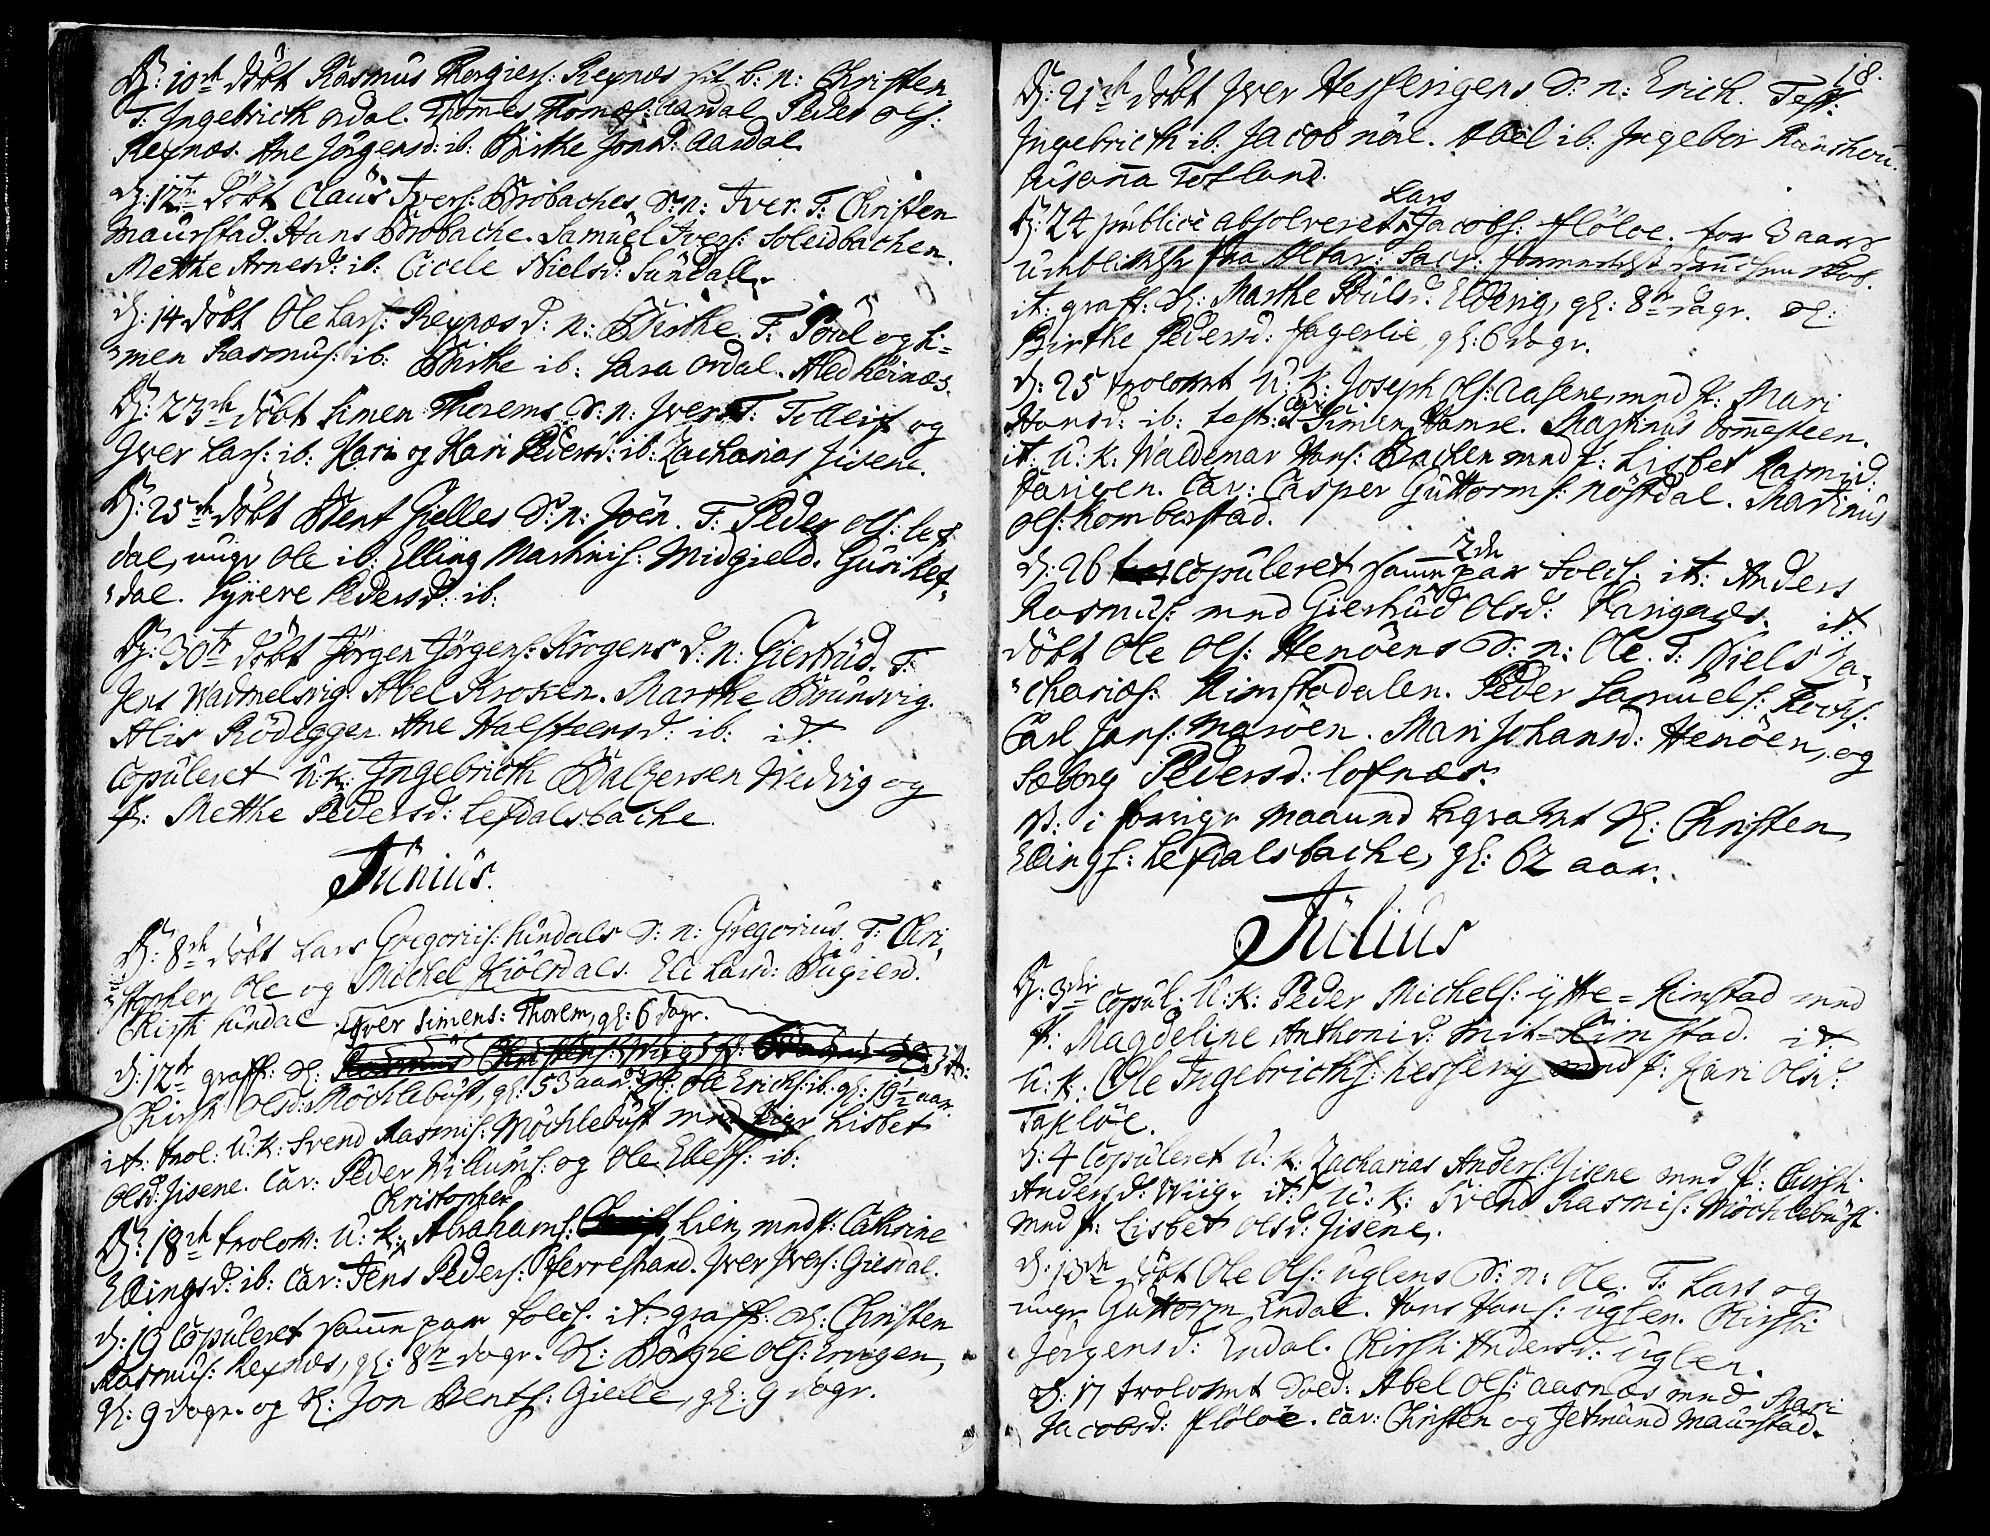 D: 10de döbt Rasmus Thorgiers: Reynæs sit b: n: Christen
T: Ingebricth ordal. Thomes Thomæs: aardal Peder Ols:
Reynæs. Ane Jörgensd: ib: Birthe Jonsd: Aardal.
D: 12te döbt Claus Ivers: Brobaches d: n: Iver. T: Christen
Maurstad. Hans Brobache. Samuel Ivers: Soleidbachen.
Mette Arnesd: ib: Cicele Nielsd: Sundall.
d: 14 döbt Ole Lars: Reynæs d: n: Birthe. T: Poul og Si-
men Rasmus: ib: Birthe ib: Sara ordal. Aled Reinæs.
D: 23de döbt Simen Thorems d: n: Iver. T: Tolleif og
Iver Lars: ib: Mari og Kari Pedersd: ib: Zacharias Jisene.
D: 25de döbt Bent Gielles d: n: Joen. T: Peder Ols: Lef-
dal, unge Ole ib: Elling Martinis: Midgield. Guri Lef-
dal. Syneve Pedersd: ib:
D: 30te döbt Jörgen Jörgens: Krogens d: n: Giertrud. T:
Jens Wadmelsvig. Abel Kroken. Marthe Brunsvig.
Alis Rödeggen. Ane Halsteensd: ib: it
Copuleret U: K: Ingebricth Baltzersen Wedvig og
P: Mette Pedersd: Lefdalsbache.
Junius.
D: 8de döbt Lars Gregorius: Lundals d: n: Gregorius. T: Chri-
stopher, Ole og Michel Hiölsdals. Eli Larsd: Bugierd.
Kirsti Lundal. Iver Simens: Thorem, gl: 6 dagr.
d: 12te graff: Sl: it:
Chirsti Olsd: Möchlebust, gl: 53 aar. Sl: Ole Erichs: ib: gl: 19½ aar.
it: trol: U: K: Svend Rasmis: Möchlebust med Pige Lisbet
Olsd: Jisene. Cav: Peder Willums: og Ole Ellefs: ib:
Christopher
D: 18de trolov: U: K: Abrahams: Lien, med P: Cathrine
Ellingsd: ib: Cav: Jens Peders: Pferrestrand. Iver Ivers: Giesdal.
d: 19 Copuleret samme par folch. it: graff: Sl: Christen
Rasmus: Reynæs, gl: 8te dagr. Sl: Börgie Ols: Ervigen,
gl: 9 dagr. og Sl: Jon Bents: Gielle, gl: 9 dagr.
18.
D: 21de döbt Iver Hessevigens d: n: Erich. Test:
Ingebricth ib: Jacob nöre. Abel ib: Ingebor Raunehou.
Susanna Totland.
Lars
D: 22 publice absolveret Jacobs: Flölöe. for 3 aars
udeblivelse fra Altar: Sacr:
it: graff: Sl: Marthe Pouls d: Eldevig, gl: 8te dagr. Sl:
Birthe Pedersd: Fagerlie, gl: 6 dagr.
D: 25 trolovet U: K: Joseph Ols: Aasene med P: Mari
Hansd: ib: test: Simen Hamre. Martinus Dommesteen.
it U: K: Waldemar Hans: Bachen med P: Lisbet Rasmisd:
Farigen. Cav: Casper Guttorms: nöstdal. Martinus
Ols: Komberstad.
2de
D: 26 Copuleret samme par folch. it: Anders
Rasmus: med Giertrud Olsd: Farignæs. it
döbt Ole Ols: Henöens d: n: Ole. T: Niels Za-
charias: Rimstadalen. Peder Samuels: Rochs:
Carl Jans: Maroen. Mari Johansd: Henöen, og
Seborg Pedersd: Lofnæs.
NB: i forrige maaned begravet Sl: Christen
Ellings: Lefdalsbache, gl: 62 aar.
Julius
D: 3die Copul: U: K: Peder Michels: ytte=Rimstad med
P: Magdeline Anthoni d: mit=Rimstad. it
U: K: Ole Ingebricths: hessevig med P: Kari Olsd:
Taklöe.
D: 4 Copuleret U: K: Zacharias Anders: Jisene med P: Chirsti
Andersd: Wiige it: U: K: Svend Rasmis: Möchlebust
med P: Lisbet Olsd: Jisene.
D: 13de döbt Ole Ols: uglens d: n: Ole. T: Lars og
unge Guttorm Endal. Hans Hans: uglen. Kirsti
Jörgensd: Endal. Chirsti Andersd: uglen.
D: 17 trolovet Sold: Abel Ols: aarnæs med Mari
Jacobsd: Flölöe. Cav: Christen og Jetmund Maurstad.